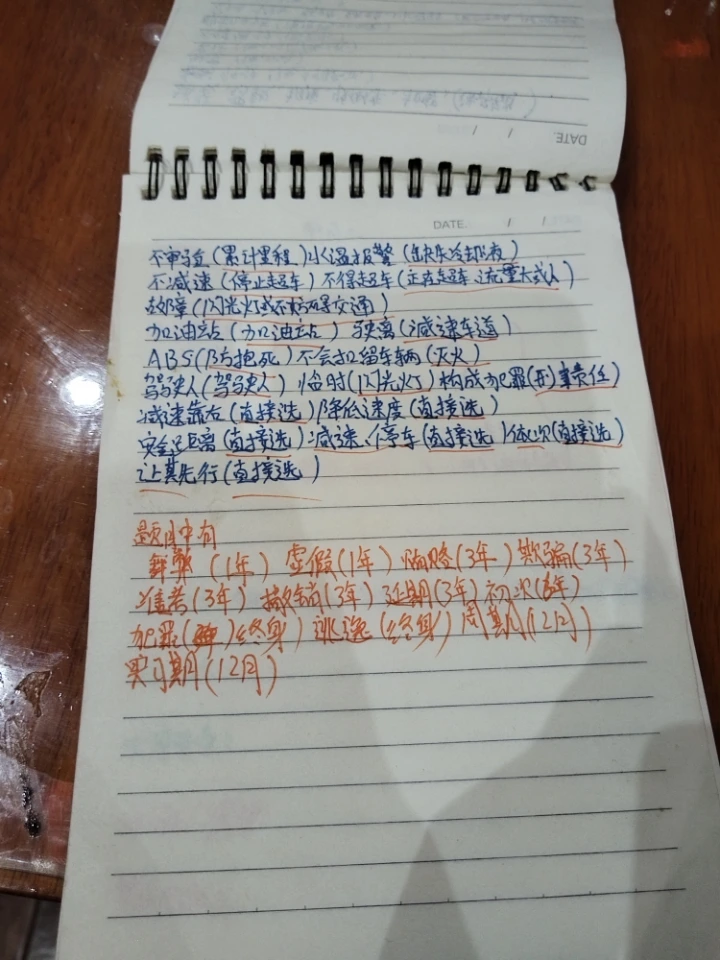 DATE.
DATE. / /
不审验(累计里程)水温报警(缺冷却液)
不减速(停止超车)不得超车(正在超车、流量大或人)
故障(闪光灯或不妨碍交通)
加油站(加油站)驶离(减速车道)
ABS(防抱死)不会扣留车辆(灭火)
驾驶人(驾驶人)临时(闪光灯)构成犯罪(刑)事责任)
减速靠右(直接选)降低速度(直接选)
安全距离(直接选)减速、停车(直接选)依次(直接选)
让其先行(直接选)
题目中有
舞弊(1年)虚假(1年)贿赂(3年)欺骗(3年)
准考(3年)撤销(3年)延期(3年)初次(6年)
犯罪(终身)逃逸(终身)周期(12月)
实习期(12月)